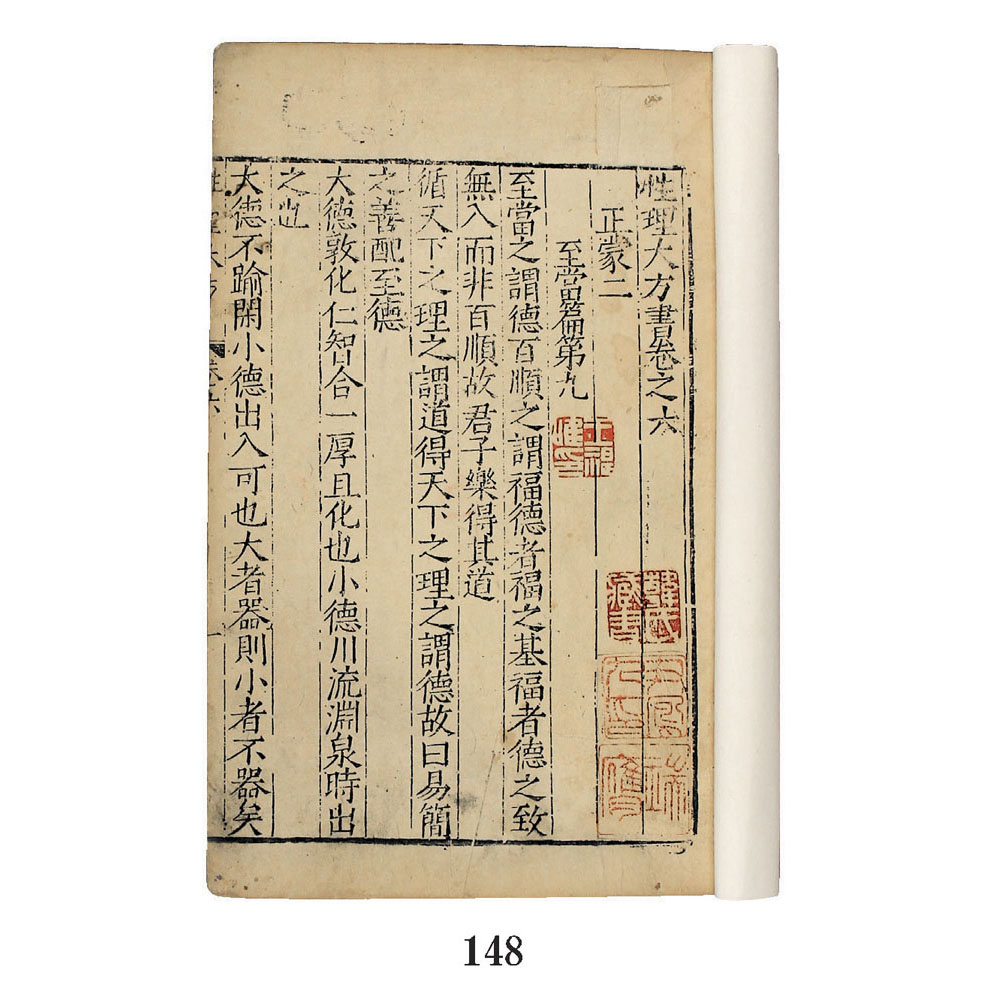 性理大方書卷之六
正蒙二
至當篇第九
至當之謂德百順之謂福德者福之基福者德之致
無入而非百順故君子樂得其道
循天下之理之謂道得天下之理之謂德故曰易簡
之善配至德
大德敦化仁智合一厚且化也小德川流淵泉時出
之也
大德不踰閑小德出入可也大者器則小者不器矣
148